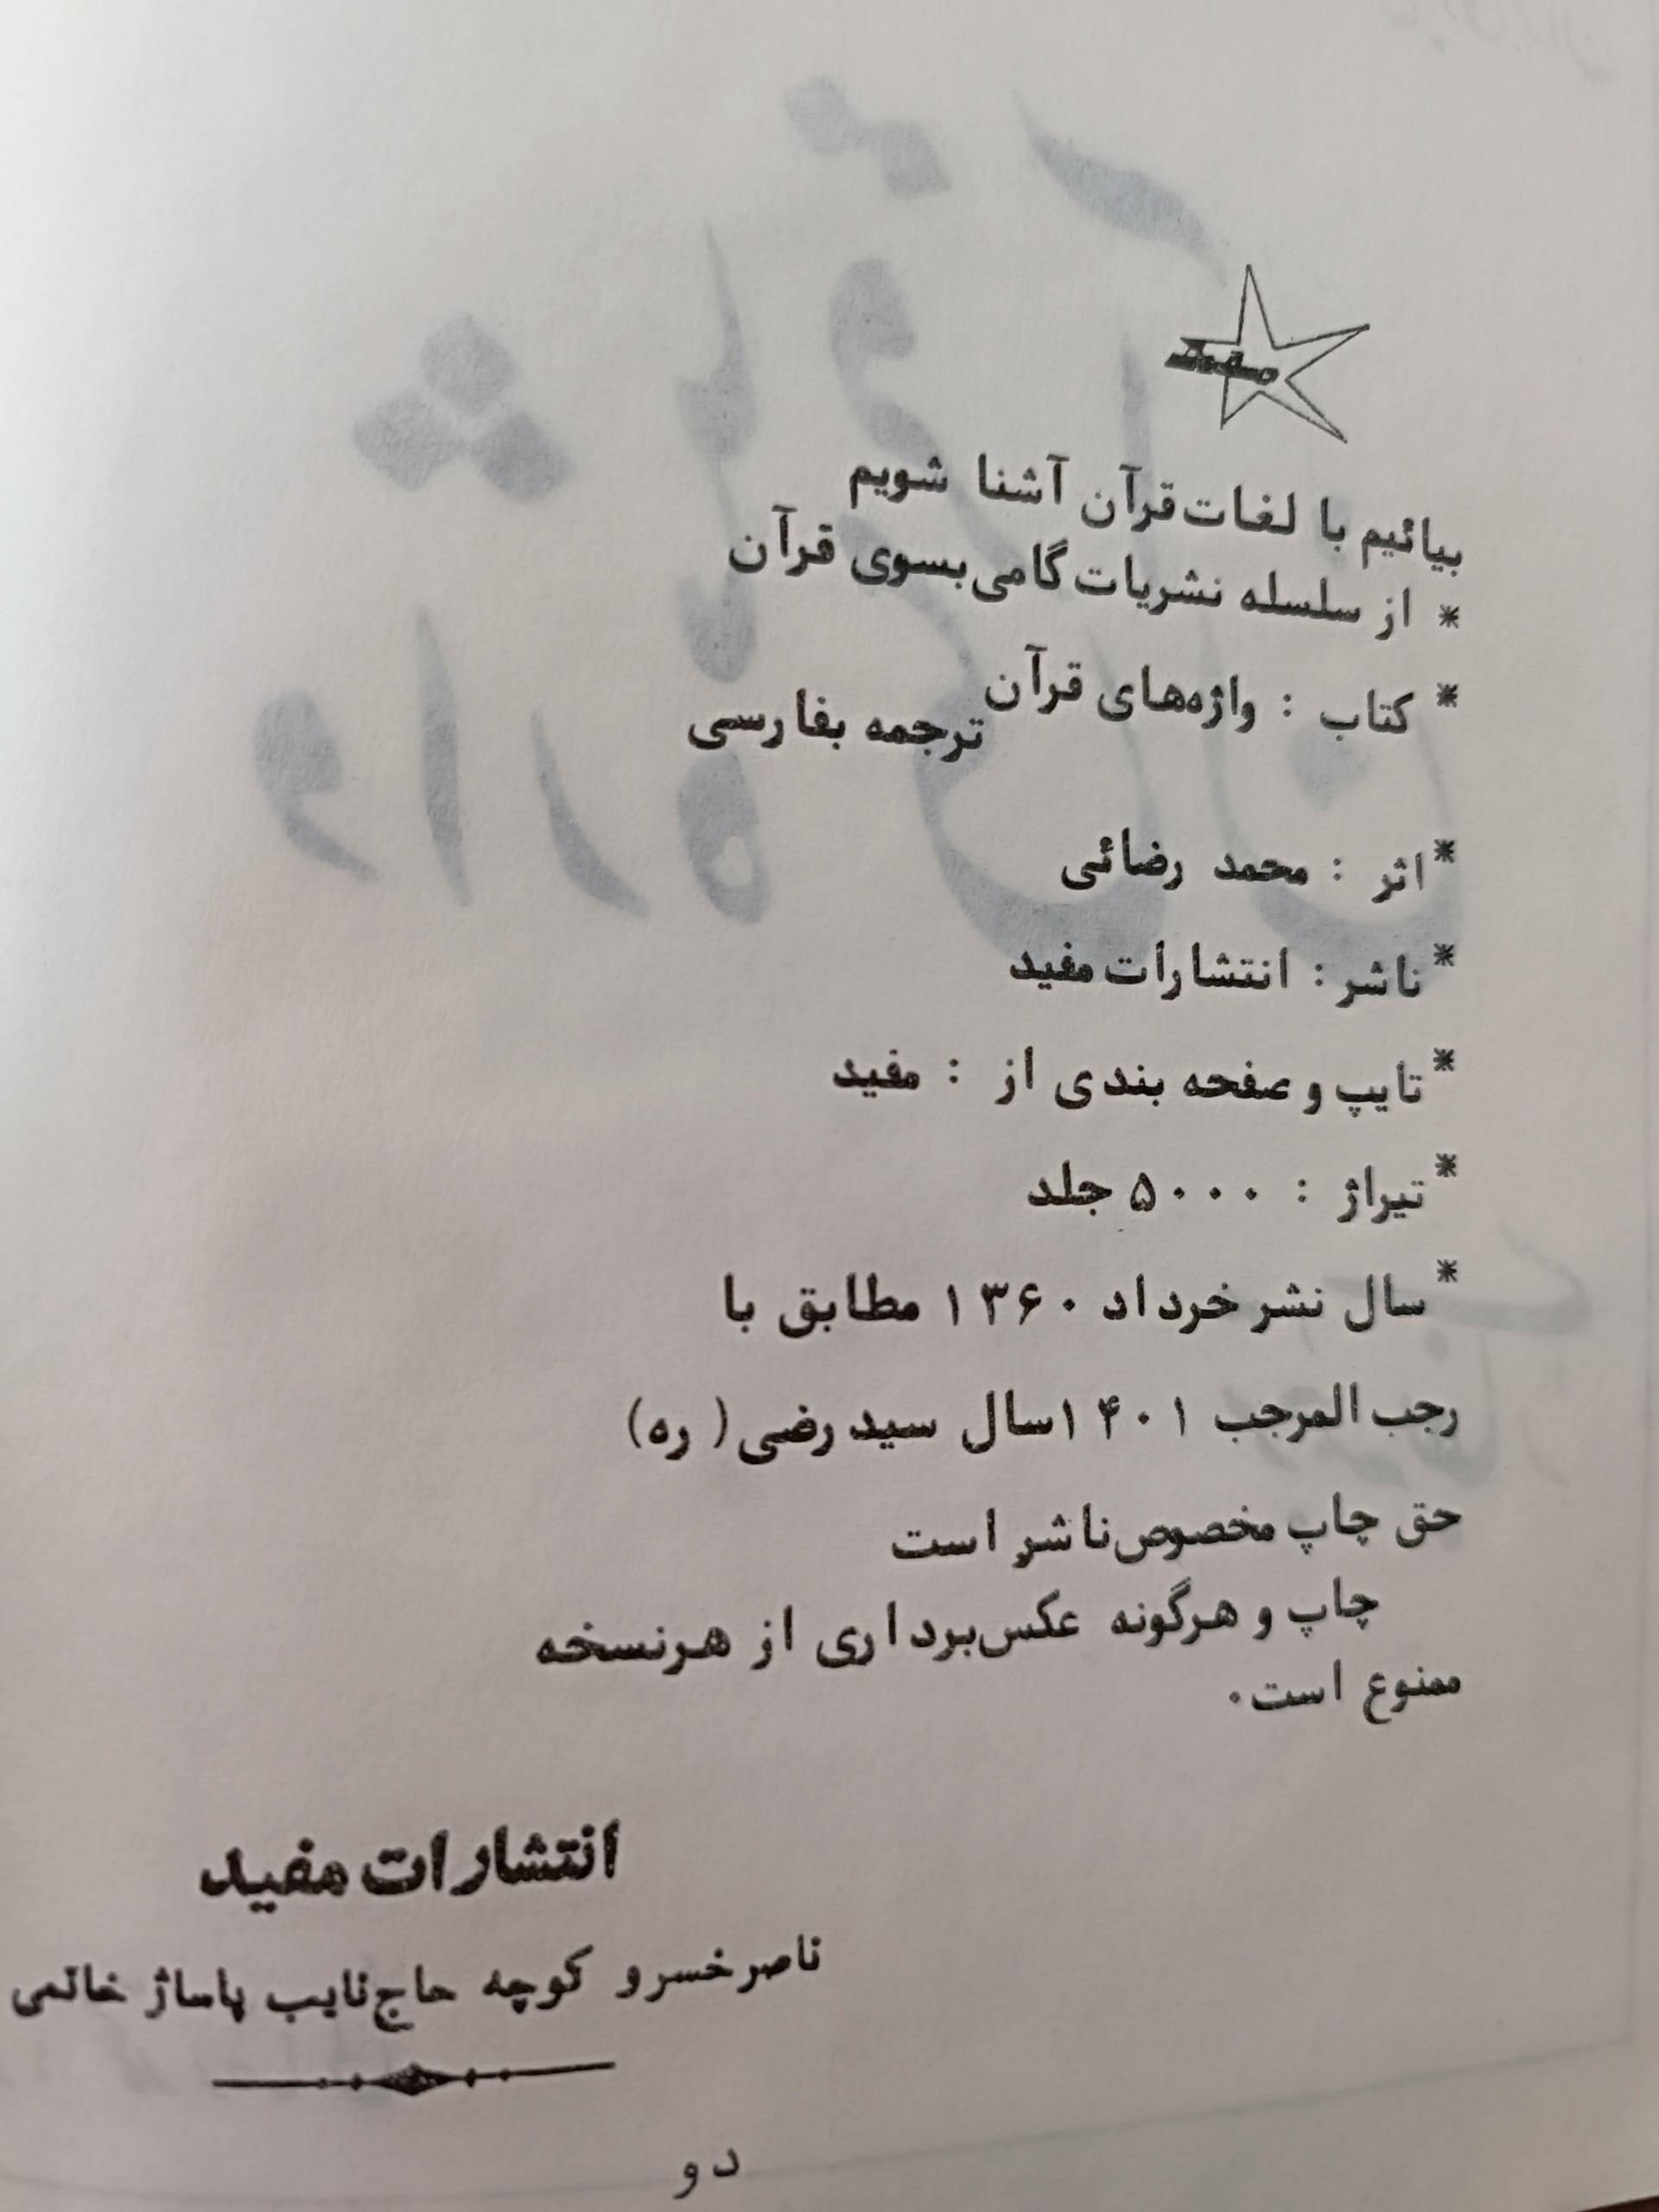 مفید
بیائیم با لغات قرآن آشنا شویم
* از سلسله نشریات گامی بسوی قرآن
* کتاب : واژه‌های قرآن ترجمه بفارسی
* اثر : محمد رضائی
* ناشر : انتشارات مفید
* تایپ و صفحه بندی از : مفید
* تیراژ : ۵۰۰۰ جلد
* سال نشر خرداد ۱۳۶۰ مطابق با
رجب المرجب ۱۴۰۱ سال سید رضی ( ره )
حق چاپ مخصوص ناشر است
چاپ و هرگونه عکس‌برداری از هرنسخه
ممنوع است.
انتشارات مفید
ناصرخسرو کوچه حاج‌نایب پاساژ خاتمی
دو